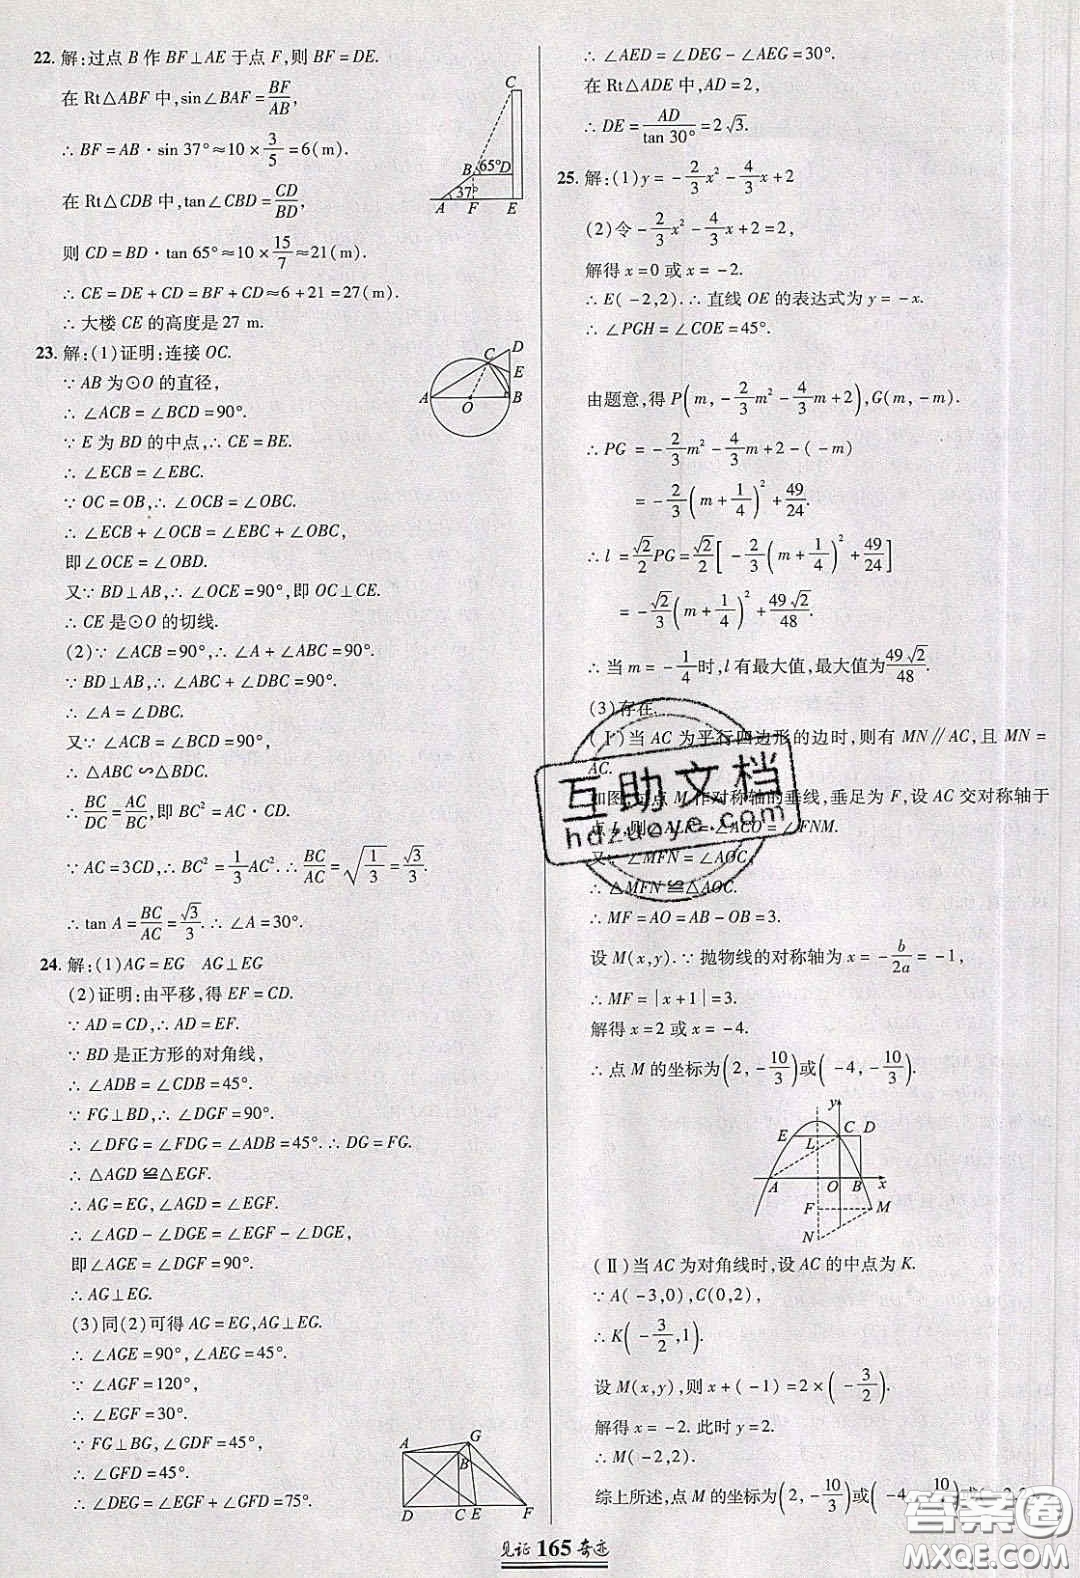 22. 解:过点 B 作 BF⊥AE 于点 F,则 BF=DE.
在 Rt△ABF 中,sin∠BAF=BF/AB,
∴ BF=AB·sin 37°≈10×3/5=6(m).
在 Rt△CDB 中,tan∠CBD=CD/BD,
则 CD=BD·tan 65°≈10×15/7≈21(m).
∴ CE=DE+CD=BF+CD≈6+21=27(m).
∴ 大楼 CE 的高度是 27 m.
C
B 65° D
37°
A F E
23. 解:(1)证明:连接 OC.
∵ AB 为⊙O 的直径,
∴ ∠ACB=∠BCD=90°.
∵ E 为 BD 的中点,∴ CE=BE.
∴ ∠ECB=∠EBC.
∵ OC=OB,∴ ∠OCB=∠OBC.
∴ ∠ECB+∠OCB=∠EBC+∠OBC,
即∠OCE=∠OBD.
又∵ BD⊥AB,∴ ∠OCE=90°,即 OC⊥CE.
∴ CE 是⊙O 的切线.
(2)∵ ∠ACB=90°,∴ ∠A+∠ABC=90°.
∵ BD⊥AB,∴ ∠ABC+∠DBC=90°.
∴ ∠A=∠DBC.
又∵ ∠ACB=∠BCD=90°,
∴ △ABC∽△BDC.
∴ BC/DC=AC/BC,即 BC²=AC·CD.
∵ AC=3CD,∴ BC²=1/3AC².∴ BC/AC=√(1/3)=√3/3.
∴ tan A=BC/AC=√3/3.∴ ∠A=30°.
D
C
E
A O B
24. 解:(1)AG=EG AG⊥EG
(2)证明:由平移,得 EF=CD.
∵ AD=CD,∴ AD=EF.
∵ BD 是正方形的对角线,
∴ ∠ADB=∠CDB=45°.
∵ FG⊥BD,∴ ∠DGF=90°.
∴ ∠DFG=∠FDG=∠ADB=45°.∴ DG=FG.
∴ △AGD≌△EGF.
∴ AG=EG,∠AGD=∠EGF.
∴ ∠AGD-∠DGE=∠EGF-∠DGE,
即∠AGE=∠DGF=90°.
∴ AG⊥EG.
(3)同(2)可得 AG=EG,AG⊥EG.
∴ ∠AGE=90°,∠AEG=45°.
∵ ∠AGF=120°,
∴ ∠EGF=30°.
∵ FG⊥BG,∠GDF=45°,
∴ ∠GFD=45°.
∴ ∠DEG=∠EGF+∠GFD=75°.
A G
B
D C E F
∴ ∠AED=∠DEG-∠AEG=30°.
在 Rt△ADE 中,AD=2,
∴ DE=AD/tan 30°=2√3.
25. 解:(1)y=-2/3x²-4/3x+2
(2)令-2/3x²-4/3x+2=2,
解得 x=0 或 x=-2.
∴ E(-2,2).∴ 直线 OE 的表达式为 y=-x.
∴ ∠PGH=∠COE=45°.
由题意,得 P(m,-2/3m²-4/3m+2),G(m,-m).
∴ PG=-2/3m²-4/3m+2-(-m)
=-2/3(m+1/4)²+49/24.
∴ l=√2/2PG=√2/2[-2/3(m+1/4)²+49/24]
=-√2/3(m+1/4)²+49√2/48.
∴ 当 m=-1/4时,l 有最大值,最大值为49√2/48.
(3)存在.
(Ⅰ)当 AC 为平行四边形的边时,则有 MN∥AC,且 MN=
AC.
如图,过点 M 作对称轴的垂线,垂足为 F,设 AC 交对称轴于
点 L,则∠ALF=∠ACO=∠FNM.
又∵ ∠MFN=∠AOC,
∴ △MFN≌△AOC.
∴ MF=AO=AB-OB=3.
设 M(x,y).∵ 抛物线的对称轴为 x=-b/2a=-1,
∴ MF=|x+1|=3.
解得 x=2 或 x=-4.
∴ 点 M 的坐标为(2,-10/3)或(-4,-10/3).
y
E C D
L
A O B x
F M
N
(Ⅱ)当 AC 为对角线时,设 AC 的中点为 K.
∵ A(-3,0),C(0,2),
∴ K(-3/2,1).
设 M(x,y),则 x+(-1)=2×(-3/2).
解得 x=-2. 此时 y=2.
∴ M(-2,2).
综上所述,点 M 的坐标为(2,-10/3)或(-4,-10/3)或(-2,2).
互助文档
hdzuoye.com
答案圈
MXQE.COM
见证 165 奇迹